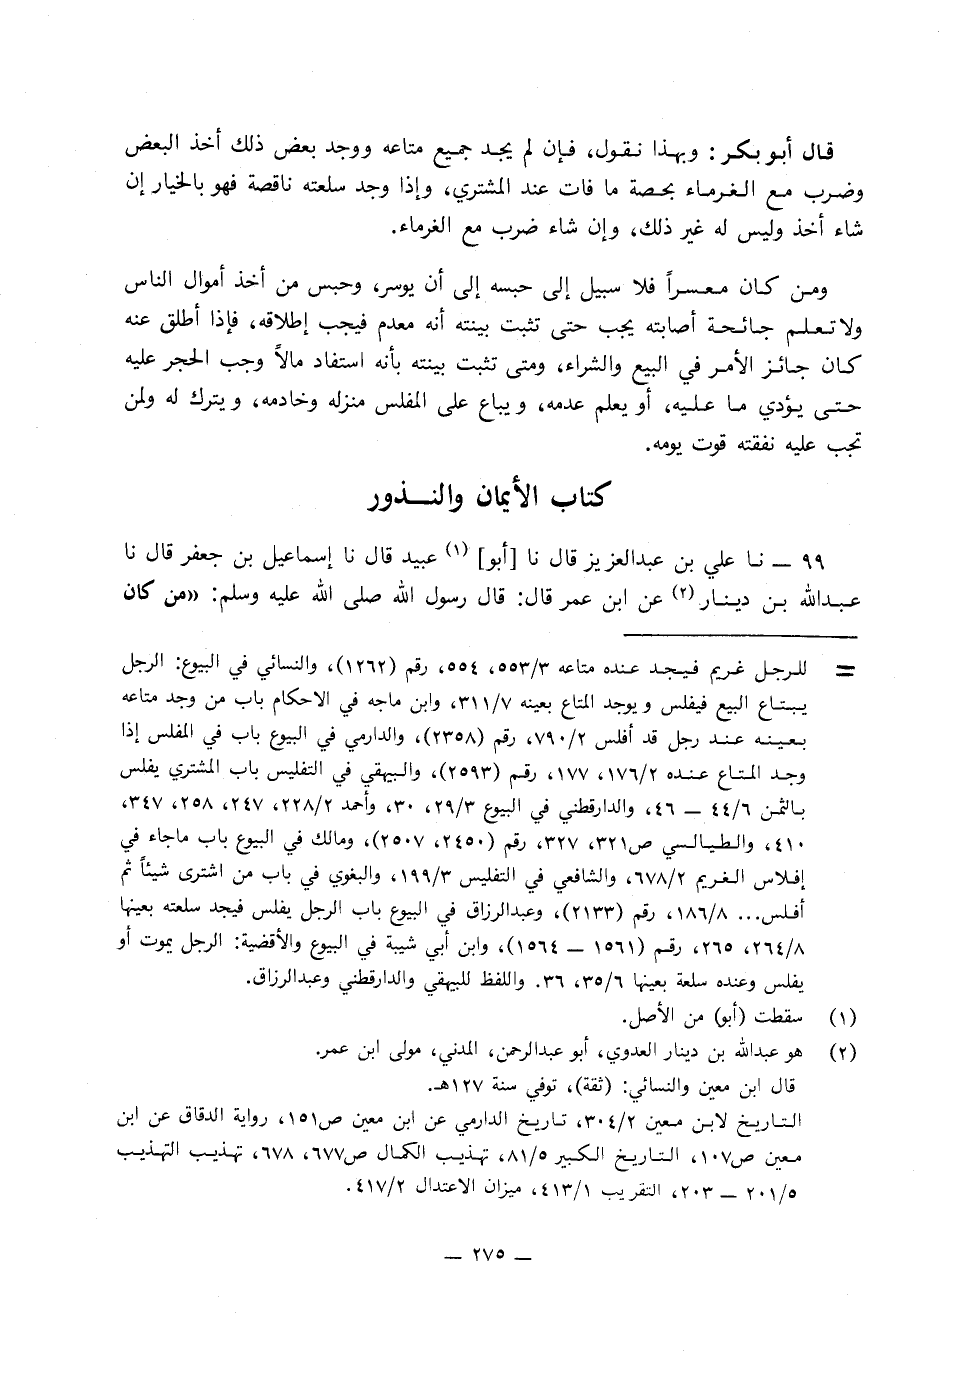 قال أبو بكر: وبهذا نقول، فإن لم يجد جميع متاعه ووجد بعض ذلك أخذ البعض
وضرب مع الغرماء بحصة ما فات عند المشتري، وإذا وجد سلعته ناقصة فهو بالخيار إن
شاء أخذ وليس له غير ذلك، وإن شاء ضرب مع الغرماء.
ومن كان معسراً فلا سبيل إلى حبسه إلى أن يوسر، وحبس من أخذ أموال الناس
ولا تعلم جائحة أصابته يجب حتى تثبت بينته أنه معدم فيجب إطلاقه، فإذا أطلق عنه
كان جائز الأمر في البيع والشراء، ومتى تثبت بينته بأنه استفاد مالاً وجب الحجر عليه
حتى يؤدي ما عليه، أو يعلم عدمه، ويباع على المفلس منزله وخادمه، ويترك له ولمن
تجب عليه نفقته قوت يومه.
كتاب الأيمان والنذور
٩٩ — نا علي بن عبدالعزيز قال نا [أبو] (١) عبيد قال نا إسماعيل بن جعفر قال نا
عبدالله بن دينار (٢) عن ابن عمر قال: قال رسول الله صلى الله عليه وسلم: «من كان
= للرجل غريم فيجد عنده متاعه ٥٥٣/٣، ٥٥٤، رقم (١٢٦٢)، والنسائي في البيوع: الرجل
يبتاع البيع فيفلس ويوجد المتاع بعينه ٣١١/٧، وابن ماجه في الاحكام باب من وجد متاعه
بعينه عند رجل قد أفلس ٧٩٠/٢، رقم (٢٣٥٨)، والدارمي في البيوع باب في المفلس إذا
وجد المتاع عنده ١٧٦/٢، ١٧٧، رقم (٢٥٩٣)، والبيهقي في التفليس باب المشتري يفلس
بالثمن ٤٤/٦ — ٤٦، والدارقطني في البيوع ٢٩/٣، ٣٠، وأحمد ٢٢٨/٢، ٢٤٧، ٢٥٨، ٣٤٧،
٤١٠، والطيالسي ص٣٢١، ٣٢٧، رقم (٢٤٥٠، ٢٥٠٧)، ومالك في البيوع باب ماجاء في
إفلاس الغريم ٦٧٨/٢، والشافعي في التفليس ١٩٩/٣، والبغوي في باب من اشترى شيئاً ثم
أفلس... ١٨٦/٨، رقم (٢١٣٣)، وعبدالرزاق في البيوع باب الرجل يفلس فيجد سلعته بعينها
٢٦٤/٨، ٢٦٥، رقم (١٥٦١ — ١٥٦٤)، وابن أبي شيبة في البيوع والأقضية: الرجل يموت أو
يفلس وعنده سلعة بعينها ٣٥/٦، ٣٦. واللفظ للبيهقي والدارقطني وعبدالرزاق.
(١) سقطت (أبو) من الأصل.
(٢) هو عبدالله بن دينار العدوي، أبو عبدالرحمن، المدني، مولى ابن عمر.
قال ابن معين والنسائي: (ثقة)، توفي سنة ١٢٧هـ.
التاريخ لابن معين ٣٠٤/٢، تاريخ الدارمي عن ابن معين ص١٥١، رواية الدقاق عن ابن
معين ص١٠٧، التاريخ الكبير ٨١/٥، تهذيب الكمال ص٦٧٧، ٦٧٨، تهذيب التهذيب
٢٠١/٥ — ٢٠٣، التقريب ٤١٣/١، ميزان الاعتدال ٤١٧/٢.
— ٢٧٥ —